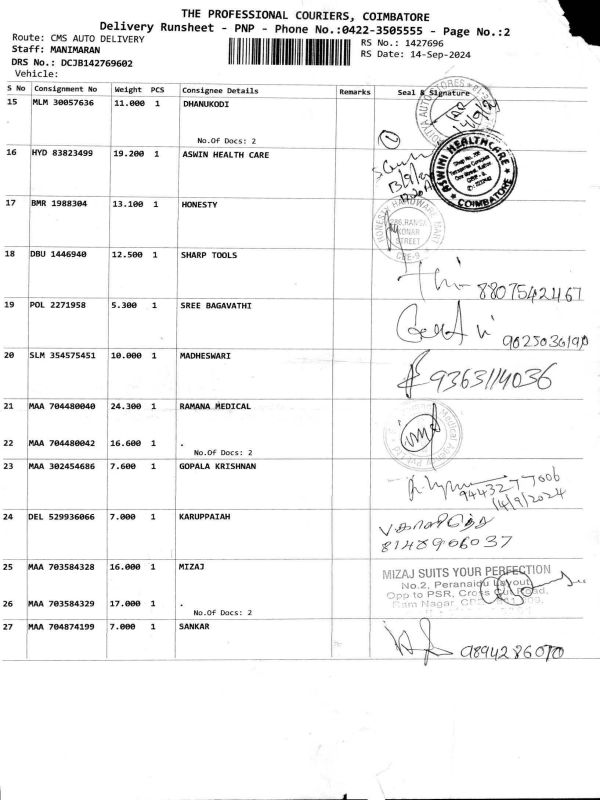 THE PROFESSIONAL COURIERS, COIMBATORE
Delivery Runsheet - PNP - Phone No.:0422-3505555 - Page No.:2
Route: CMS AUTO DELIVERY
RS No.: 1427696
Staff: MANIMARAN
RS Date: 14-Sep-2024
DRS No.: DCJB142769602
Vehicle:
S No Consignment No Weight PCS Consignee Details Remarks Seal & Signature
15 MLM 30057636 11.000 1 DHANUKODI
14/9/2
No.Of Docs: 2
16 HYD 83823499 19.200 1 ASWIN HEALTH CARE
ASWINI HEALTHCARE
COIMBATORE
17 BMR 1988304 13.100 1 HONESTY
HONESTY HARDWARE MART
STREET
CBE-9
18 DBU 1446940 12.500 1 SHARP TOOLS
8807542467
19 POL 2271958 5.300 1 SREE BAGAVATHI
9025036190
20 SLM 354575451 10.000 1 MADHESWARI
9363114036
21 MAA 704480040 24.300 1 RAMANA MEDICAL
22 MAA 704480042 16.600 1 .
No.Of Docs: 2
23 MAA 302454686 7.600 1 GOPALA KRISHNAN
9443277006
14/9/2024
24 DEL 529936066 7.000 1 KARUPPAIAH
8148906037
25 MAA 703584328 16.000 1 MIZAJ
MIZAJ SUITS YOUR PERFECTION
No.2, Peranaidu Layout,
Opp to PSR, Cross Cut Road,
Ram Nagar,
26 MAA 703584329 17.000 1 .
No.Of Docs: 2
27 MAA 704874199 7.000 1 SANKAR
9894286070